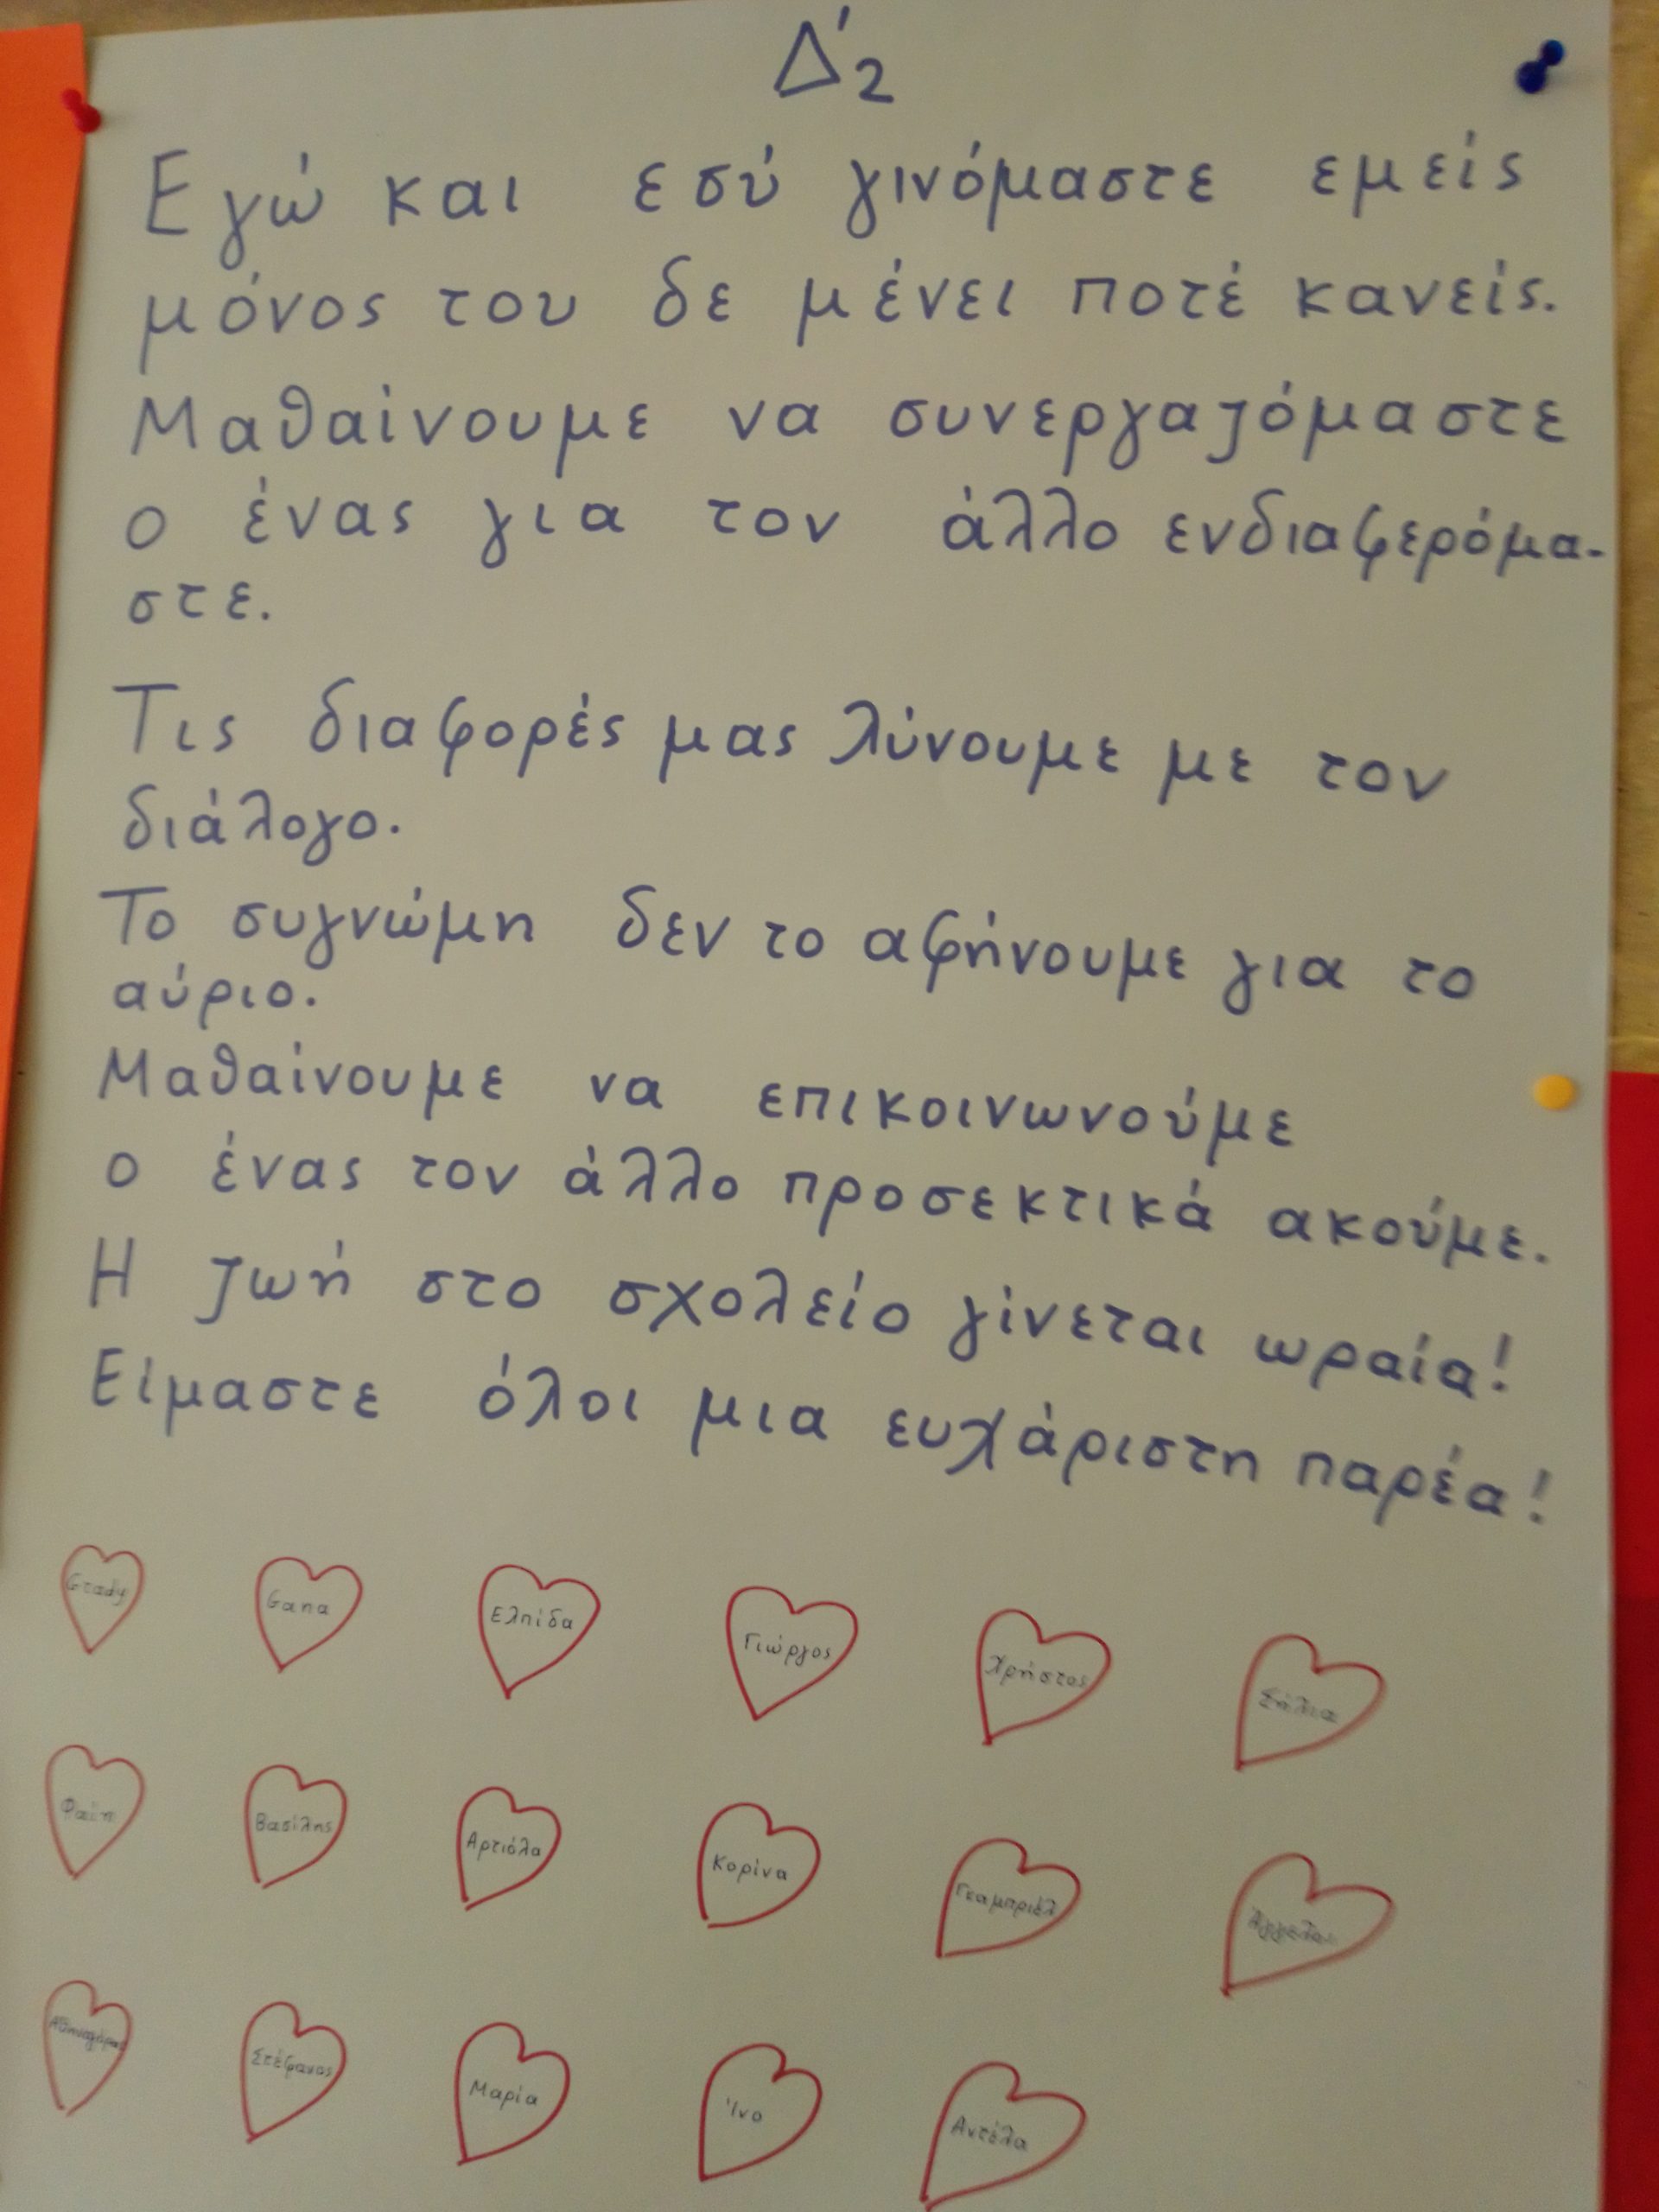 Δ'2
Εγώ και εσύ γινόμαστε εμείς
μόνος του δε μένει ποτέ κανείς.
Μαθαίνουμε να συνεργαζόμαστε
ο ένας για τον άλλο ενδιαφερόμα-
στε.
Τις διαφορές μας λύνουμε με τον
διάλογο.
Το συγνώμη δεν το αφήνουμε για το
αύριο.
Μαθαίνουμε να επικοινωνούμε
ο ένας τον άλλο προσεκτικά ακούμε.
Η ζωή στο σχολείο γίνεται ωραία!
Είμαστε όλοι μια ευχάριστη παρέα!
Grady Gana Ελπίδα Γιώργος Χρήστος
Βασίλης Αρτιόλα Κορίνα Γεαμπριέλ
Στέφανος Μαρία Ίνο Αντέλα